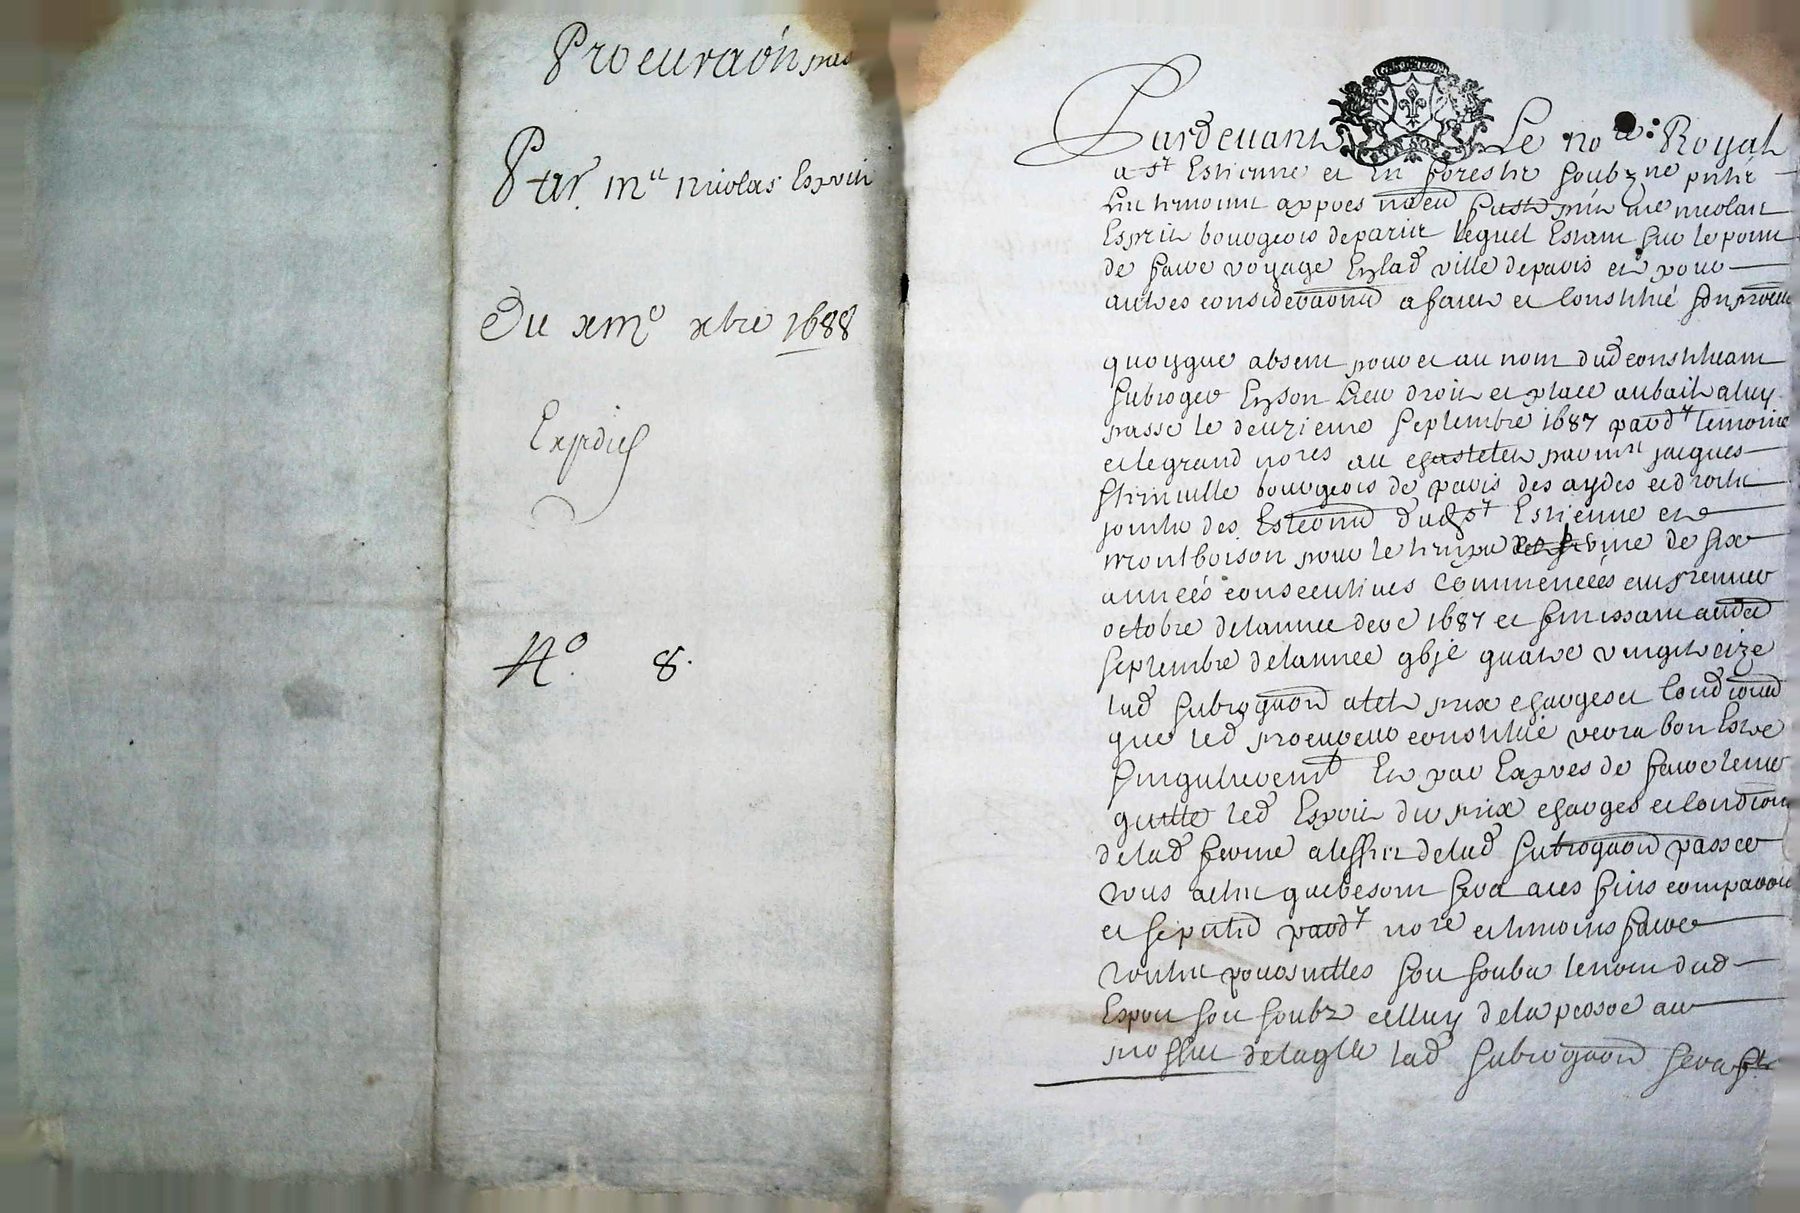 Procuraōn
Par Mᵉ Nicolas Esprit
Du xmᵉ xbre 1688
Expedié
N° 8.
Pardevant Le noʳᵉ Royal
a Sᵗ Estienne et en forestz soubzⁿᵉ pntz
Esprit bourgeois de paris lequel Estant sur le point
de faire voyage En lad ville de paris et pour
autres consideraōns a fait et constitué son procur
quoyque absent pour et au nom dud constituant
subroger En son lieu droit et place au bail a luy
passé le deuzieme septembre 1687 pardᵗ lemoine
et legrand noʳᵉˢ au chastelet par mʳᵉ jacques
bourgeois de paris des aydes et droitz
joints des Eslections dud Sᵗ Estienne et
montbrison pour le temps et terme de six
années consecutives commencées au premier
octobre de l'année dere 1687 et finissant
septembre de l'année gbjᶜ quatre vingt treize
lad subrogaōn a tel prix charges et condions
que led procureur constitué verra bon Estre
singulierement Et par Expres de faire tenir
quitte led Esprit du prix charges et condions
de lad ferme a l'effect de lad subrogaōn passer
tous actes que besoin sera a ces fins comparoir
et se pnter pardᵗ noʳᵉ et temoins faire
toutes poursuittes soit soubz le nom dud
Esprit soit soubz celluy de la persoe au
proffict de laqlle lad subrogaōn sera